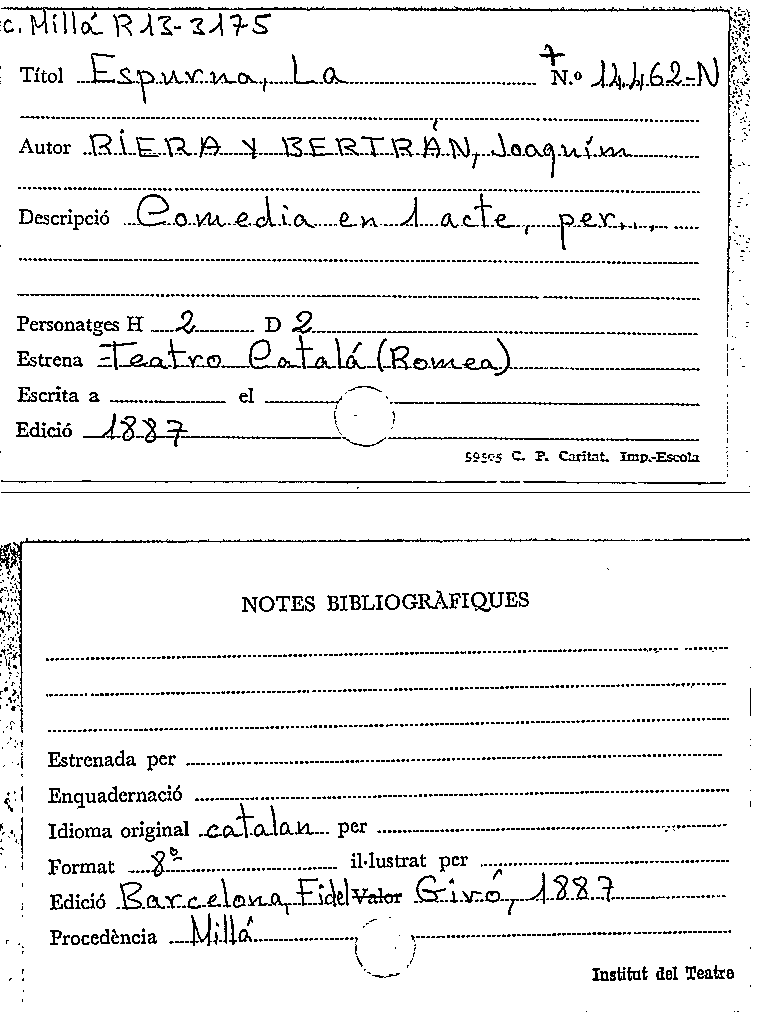 c. Millá R 13-3175
Títol Espurna, La + N.º 14462-N
Autor RIERA Y BERTRÁN, Joaquím
Descripció Comedia en 1 acte, per...
Personatges H 2 D 2
Estrena Teatro Catalá (Romea)
Escrita a el
Edició 1887
59595 C. P. Caritat. Imp.-Escola
NOTES BIBLIOGRÀFIQUES
Estrenada per
Enquadernació
Idioma original catalan per
Format 8º il·lustrat per
Edició Barcelona, Fidel Valor Giró, 1887
Procedència Millá
Institut del Teatre